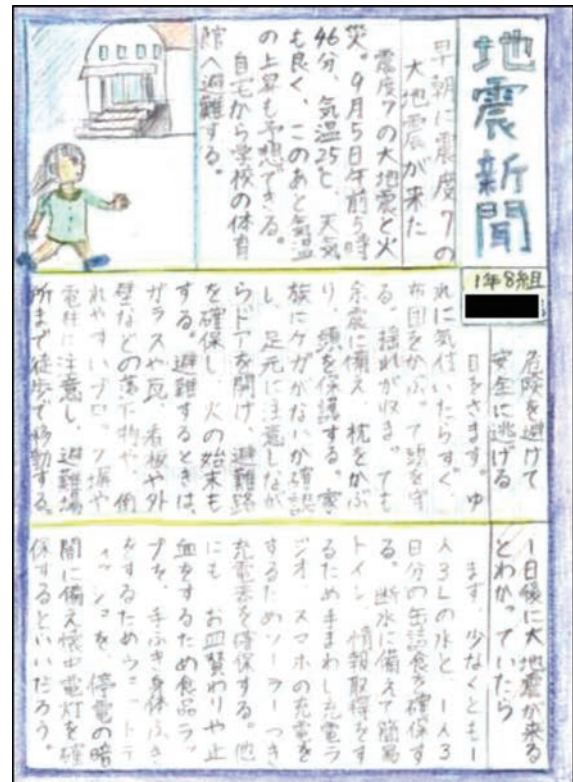 地震新聞
1年8組
早朝に震度7の
大地震が来た
震度7の大地震と火
災。9月5日午前5時
46分、気温25℃、天気
も良く、このあと気温
の上昇も予想できる。
自宅から学校の体育
館へ避難する。
危険を避けて
安全に逃げる
目をさます。ゆ
れに気付いたらすぐ、
布団をかぶって頭を守
る。揺れが収まっても
余震に備え、枕をかぶ
り、頭を保護する。家
族にケガがないか確認
し、足元に注意しなが
らドアを開け、避難路
を確保し、火の始末も
する。避難するときは、
ガラスや瓦、看板や外
壁などの落下物や、倒
れやすいブロック塀や
電柱に注意し、避難場
所まで徒歩で移動する。
1日後に大地震が来る
とわかっていたら
まず、少なくとも一
人3Lの水と、1人3
日分の缶詰食を確保す
る。断水に備えて簡易
トイレ、情報取得をす
るため手まわし充電ラ
ジオ、スマホの充電を
するためソーラーつき
充電器を確保する。他
にも、お皿替わりや止
血をするため食品ラッ
プを、手ふき身体ふき
をするためウェットテ
ィッシュを、停電の暗
闇に備え懐中電灯を確
保するといいだろう。